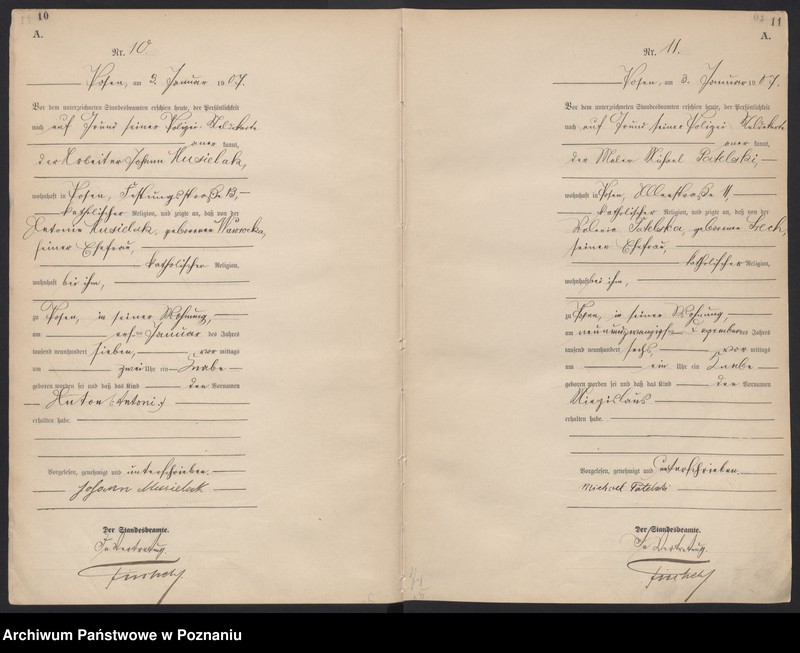 10
A.
Nr. 10.
Posen, am 3. Januar 1907.
Vor dem unterzeichneten Standesbeamten erschien heute, der Persönlichkeit
nach auf Grund seiner Polizei-Meldekarte
aner kannt,
der Arbeiter Johann Musielak,
wohnhaft in Posen, 13,
katholischer Religion, und zeigte an, daß von der
Antonie Musielak, geborenen Nawrocka,
seiner Ehefrau,
katholischer Religion,
wohnhaft bei ihm,
zu Posen, in seiner Wohnung,
am ersten Januar des Jahres
tausend neunhundert sieben, vor mittags
um zwei Uhr ein Knabe
geboren worden sei und daß das Kind den Vornamen
Anton (Antoni)
erhalten habe.
Vorgelesen, genehmigt und unterschrieben.
Johann Musielak
Der Standesbeamte.
In Vertretung.
11
A.
Nr. 11.
Posen, am 3. Januar 1907.
Vor dem unterzeichneten Standesbeamten erschien heute, der Persönlichkeit
nach auf Grund seiner Polizei-Meldekarte
aner kannt,
der Maler Michael Patelski,
wohnhaft in Posen, 11,
katholischer Religion, und zeigte an, daß von der
Patelska, geborenen
seiner Ehefrau,
katholischer Religion,
wohnhaft bei ihm,
zu Posen, in seiner Wohnung,
am neunundzwanzigsten Dezember des Jahres
tausend neunhundert sechs, vor mittags
um ein Uhr ein Knabe
geboren worden sei und daß das Kind den Vornamen
erhalten habe.
Vorgelesen, genehmigt und unterschrieben.
Michael Patelski
Der Standesbeamte.
In Vertretung.
Archiwum Państwowe w Poznaniu